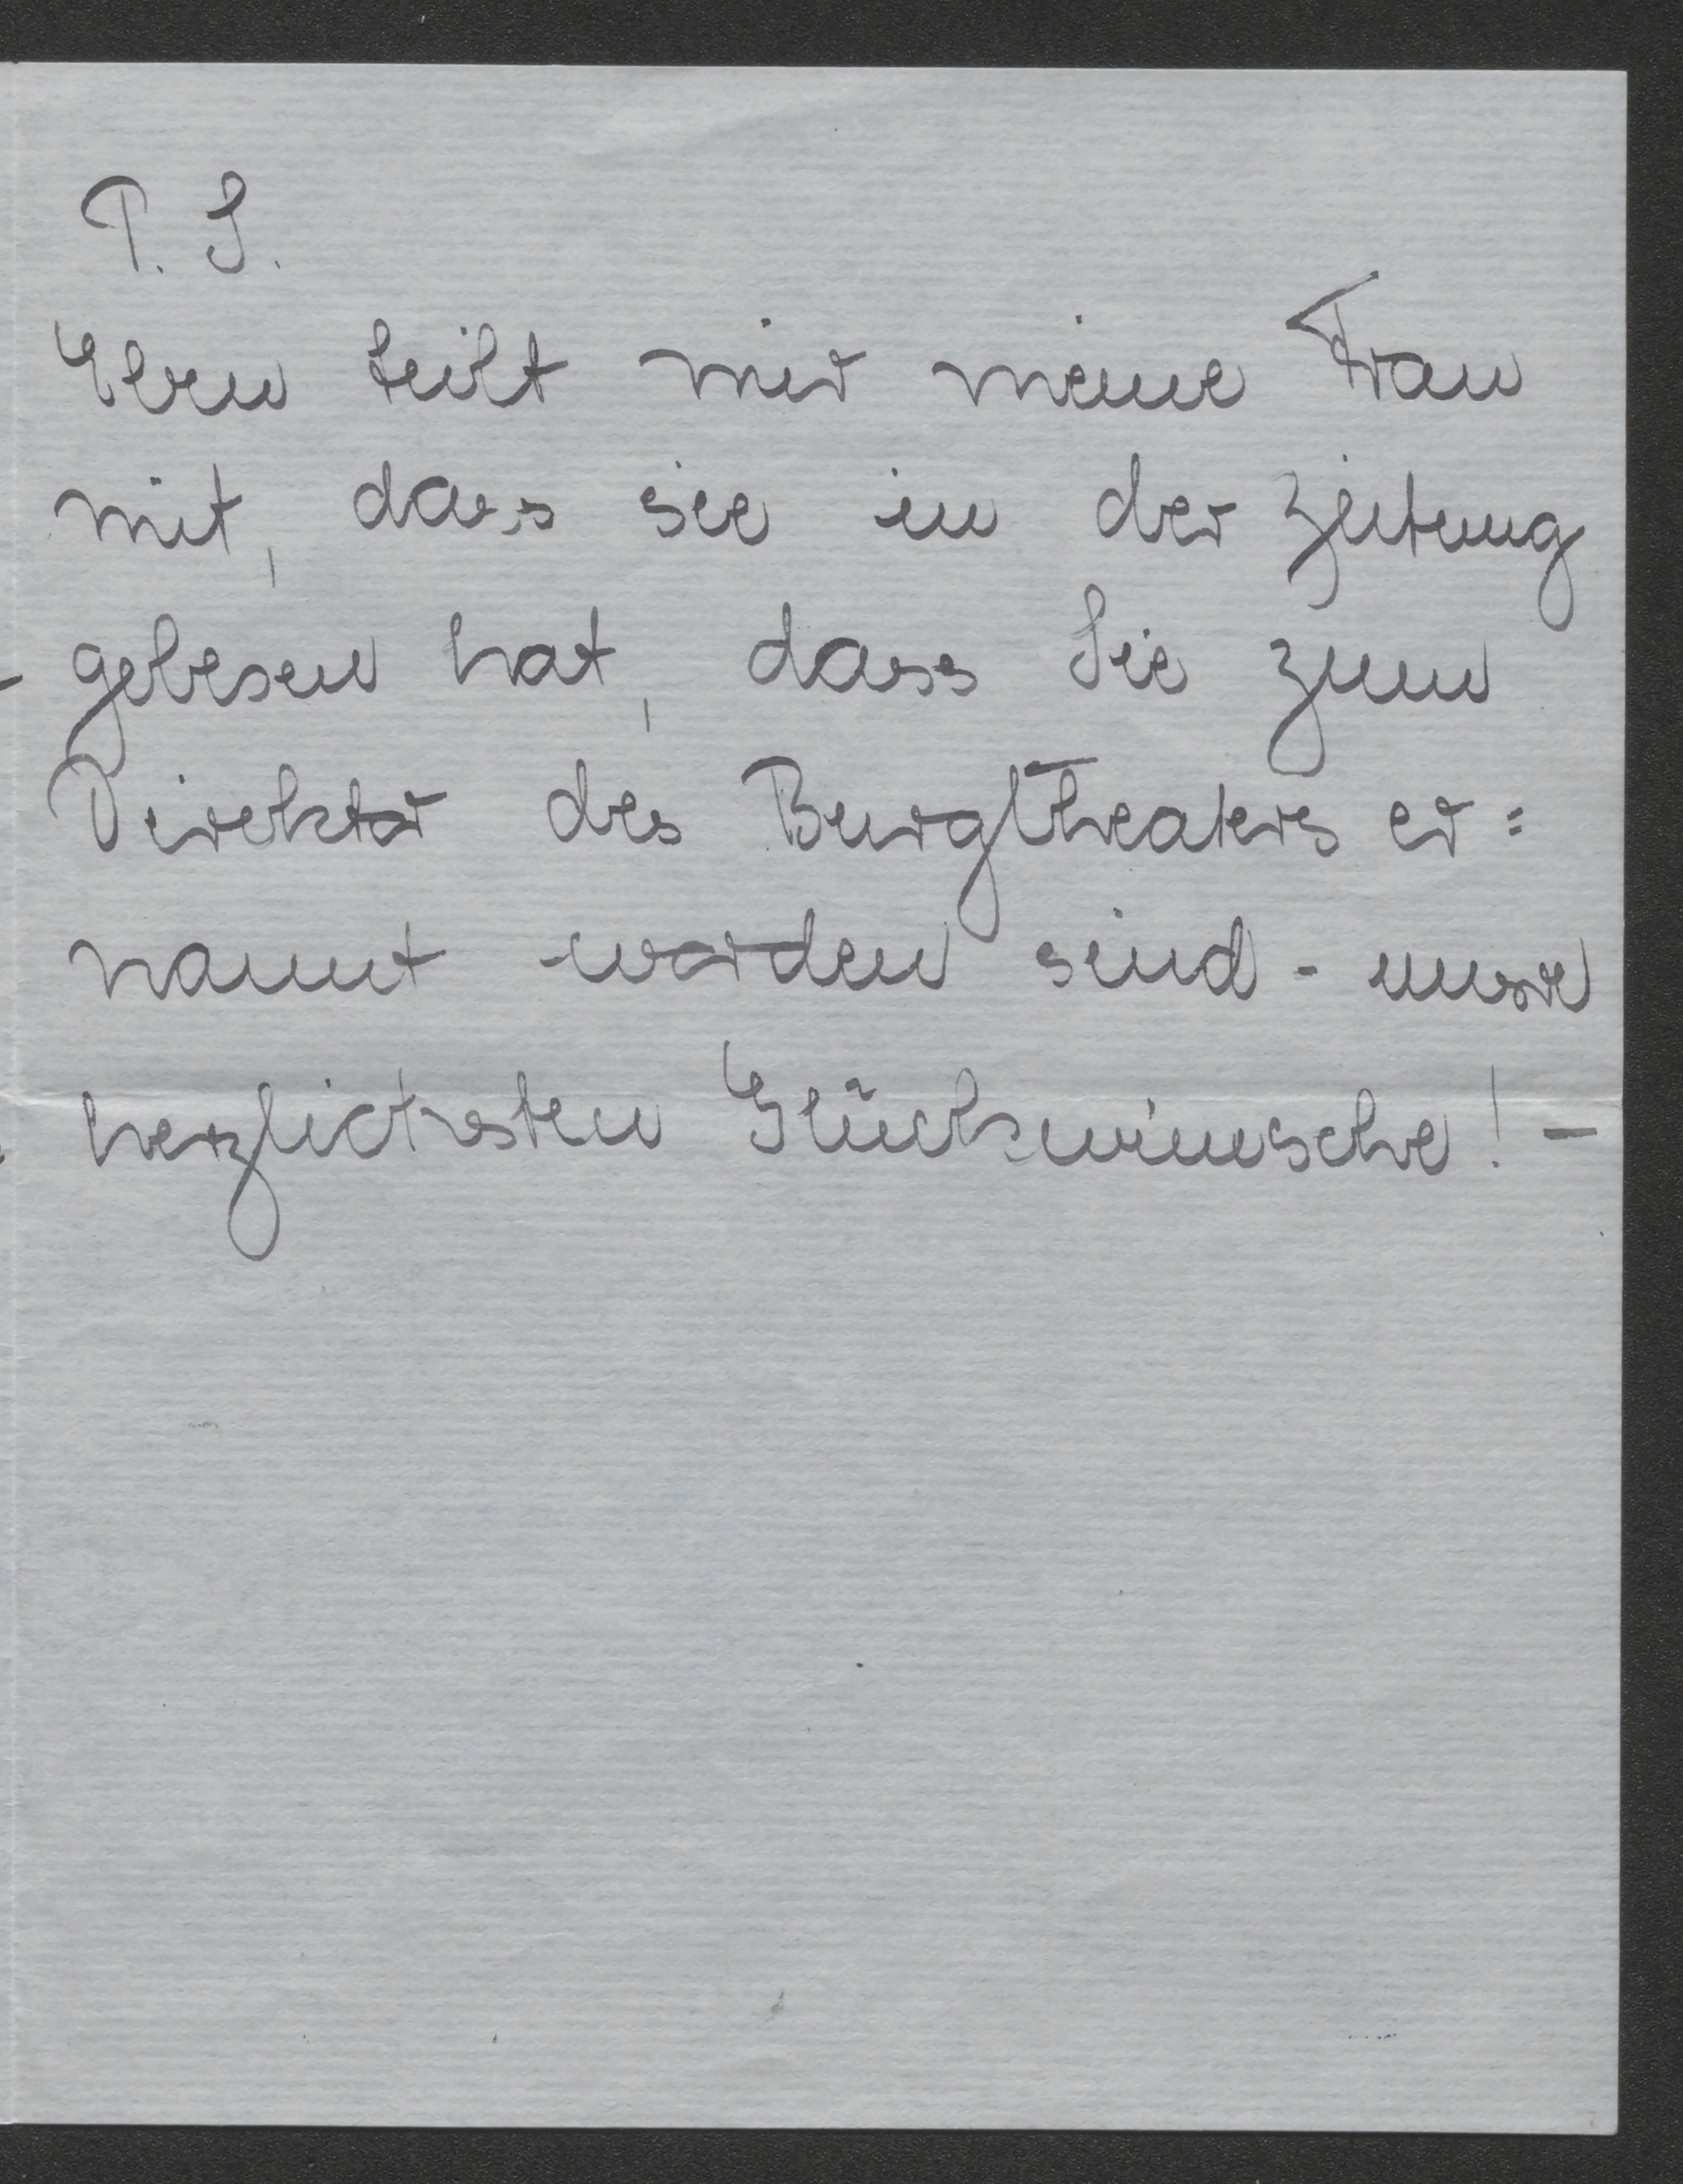 P. S.
Eben teilt mir meine Frau
mit, dass sie in der Zeitung
gelesen hat, dass Sie zum
Direktor des Burgtheaters er=
nannt worden sind - unsre
herzlichsten Glückwünsche! -